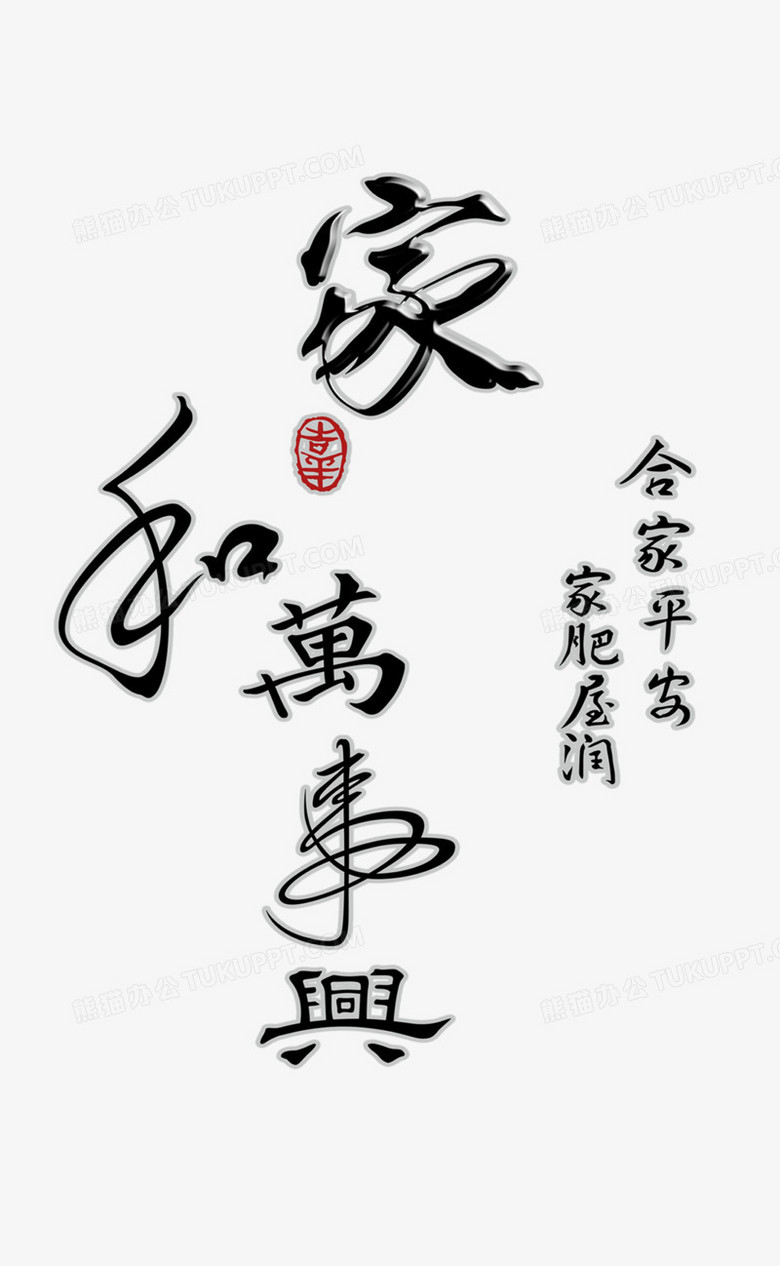 家和萬事興
合家平安
家肥屋润
熊猫办公 TUKUPPT.COM
熊猫办公 TUKUPPT.COM
熊猫办公 TUKUPPT.COM
熊猫办公 TUKUPPT.COM
熊猫办公 TUKUPPT.COM
熊猫办公 TUKUPPT.COM